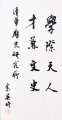 學際天人
才兼文史
清華歷史研究所